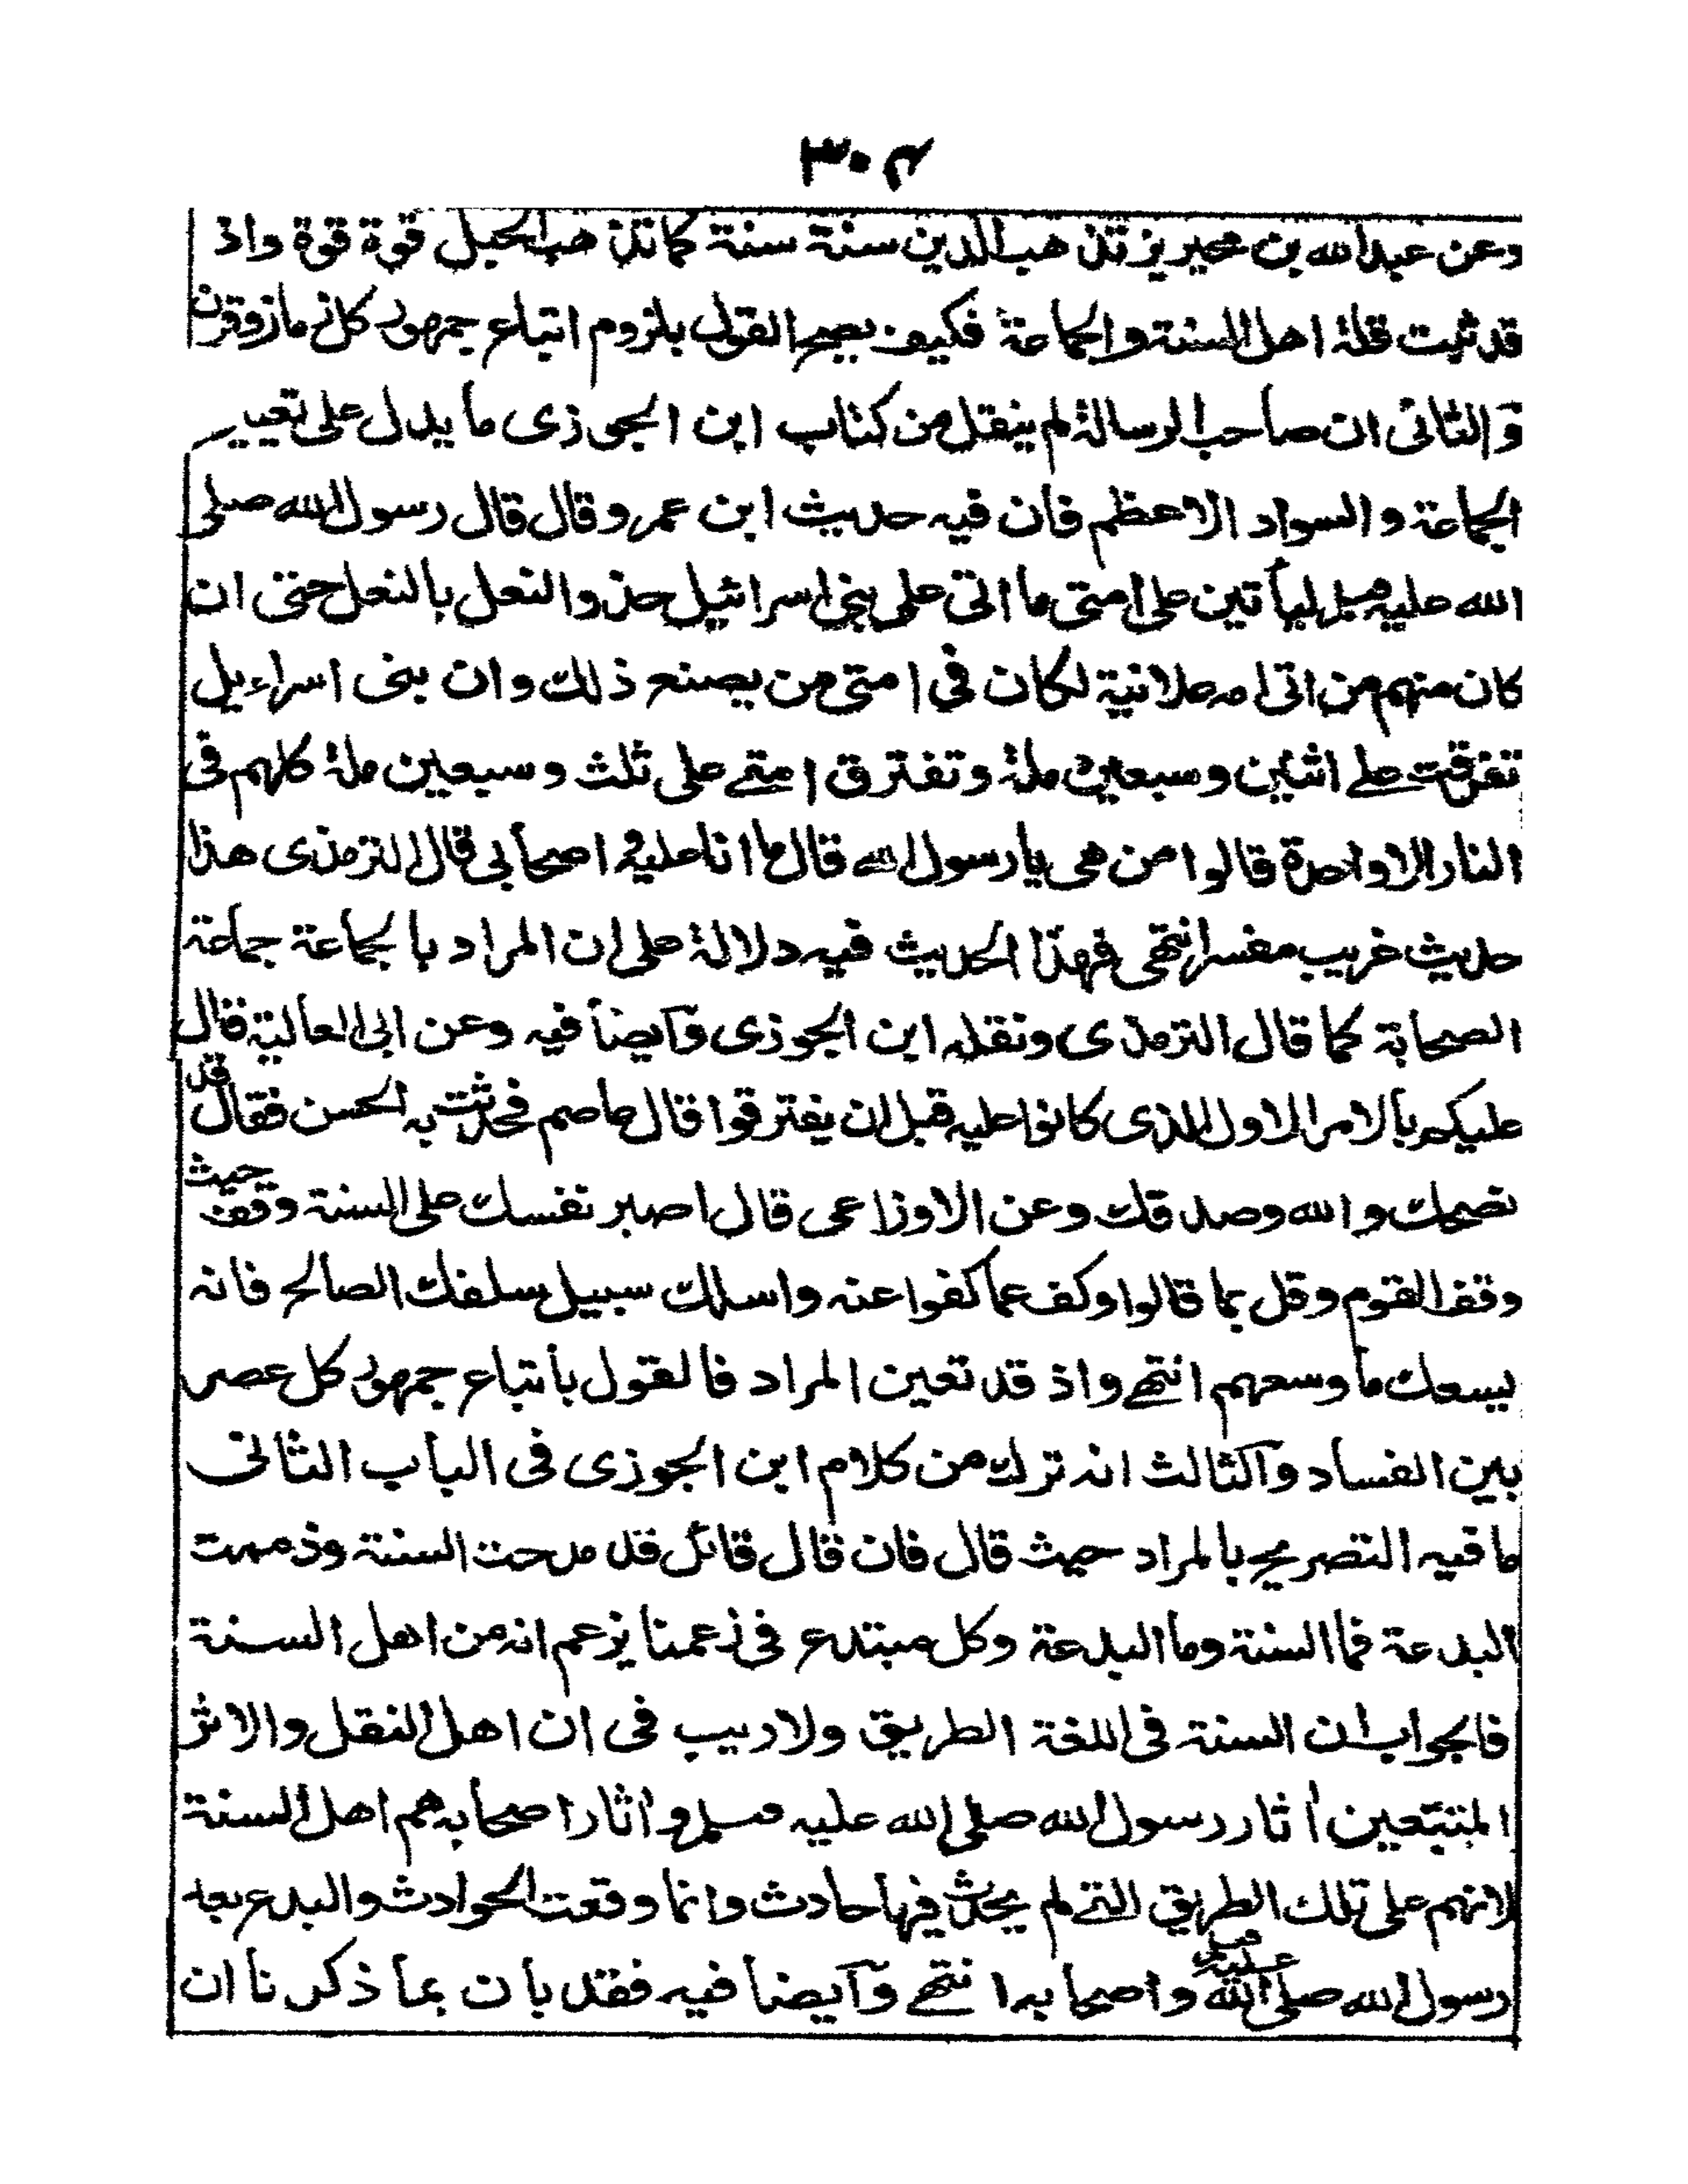 ٣٠٤
وعن عبدالله بن محيريز تذهب الدين سنة سنة كما تذهب الحبل قوة قوة واذ
قد ثبت قلة اهل السنة والجماعة فكيف يصح القول بلزوم اتباع جمهور كل زمان وقرن
والثانى ان صاحب الرسالة لم ينقل من كتاب ابن الجوزى ما يدل على تعيير
الجماعة والسواد الاعظم فان فيه حديث ابن عمر وقال قال رسول الله صلى
الله عليه وسلم ليأتين على امتى ما اتى على بنى اسرائيل حذو النعل بالنعل حتى ان
كان منهم من اتى امه علانية لكان فى امتى من يصنع ذلك وان بنى اسراءيل
تفرقت على اثنين وسبعين ملة وتفترق امتے على ثلث وسبعين ملة كلهم فى
النار الا واحدة قالوا من هى يا رسول الله قال ما انا عليه و اصحابى قال الترمذى هذا
حديث غريب مفسر انتهى فهذا الحديث فيه دلالة على ان المراد بالجماعة جماعة
الصحابة كما قال الترمذى ونقله ابن الجوزى وآيضا فيه وعن ابى العالية قال
عليكم بالامر الاول الذى كانوا عليه قبل ان يفترقوا قال عاصم فحدثت به الحسن فقال قد
نصحك والله وصدقك وعن الاوزاعى قال اصبر نفسك على السنة وقف حيث
وقف القوم وقل بما قالوا وكف عما كفوا عنه واسلك سبيل سلفك الصالح فانه
يسعك ما وسعهم انتهے واذ قد تعين المراد فالقول بأتباع جمهور كل عصر
بين الفساد وآلثالث انه ترك من كلام ابن الجوزى فى الباب الثانى
ما فيه التصريح بالمراد حيث قال فان قال قائل قد مدحت السنة وذممت
البدعة فما السنة وما البدعة وكل مبتدع فى زعمنا يزعم انه من اهل السنة
فالجواب ان السنة فى اللغة الطريق ولا ريب فى ان اهل النقل والاثر
المتبّعين اٰثار رسول الله صلى الله عليه وسلم واٰثار اصحابه هم اهل السنة
لانهم على تلك الطريق التے لم يحدث فيها حادث وانما وقعت الحوادث والبدع بعد
رسول الله صلى الله عليه وسلم واصحابه انتهے وآيضا فيه فقد بان بما ذكرنا ان